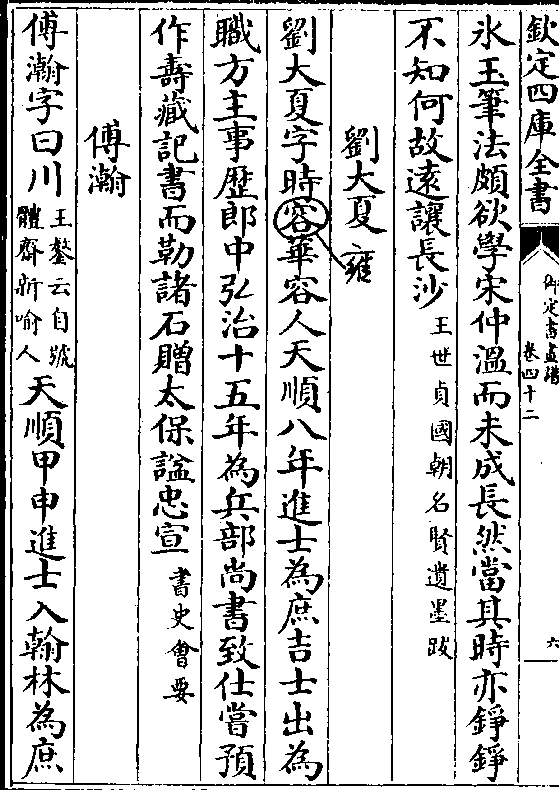 欽定四庫全書
御定書畫譜
卷四十二
六
氷玉筆法頗欲學宋仲溫而未成長然當其時亦錚錚
不知何故遠讓長沙王世貞國朝名賢遺墨跋
劉大夏
劉大夏字時容華容人天順八年進士為庶吉士出為
雍
職方主事歴郎中弘治十五年為兵部尚書致仕嘗預
作壽藏記書而勒諸石贈太保諡忠宣書史會要
傅瀚
傅瀚字曰川王鏊云自號體齋新喻人天順甲申進士入翰林為庶